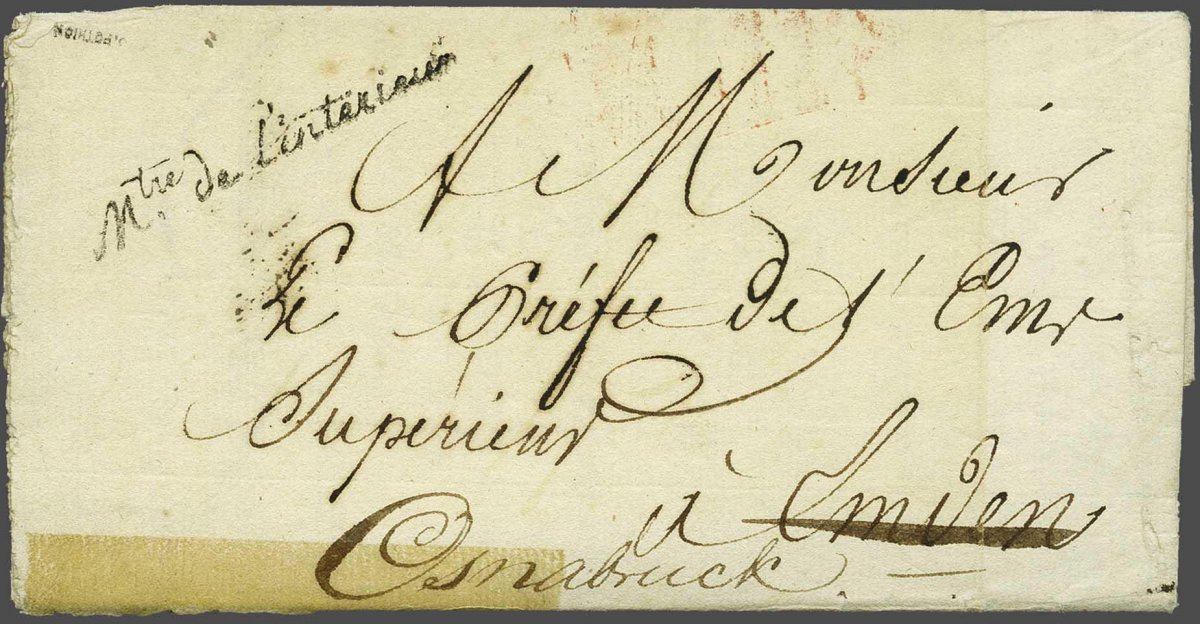 Mtre de l'intérieur
A Monsieur
Le Préfet de l'Ems
Supérieur
à Emden
Osnabruck